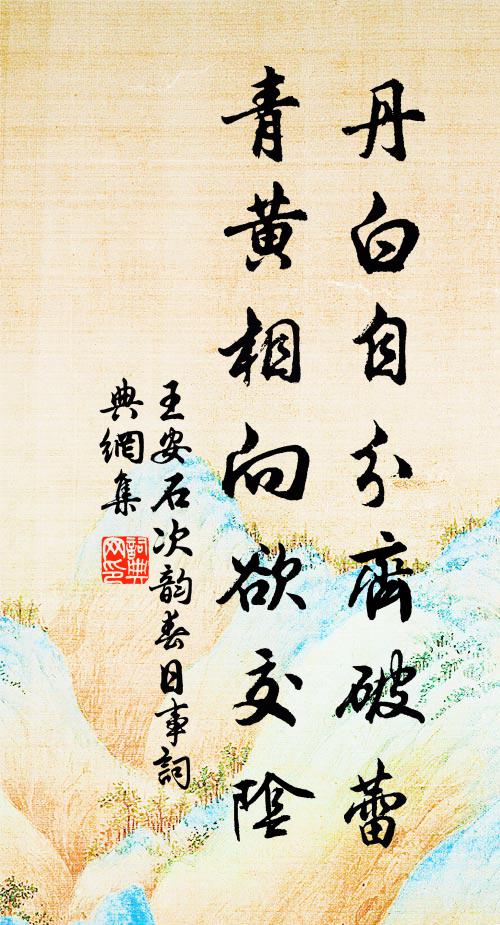 丹白自分齊破蕾
青黃相向欲交陰
王安石次韵春日事詞
典網集
詞典网印